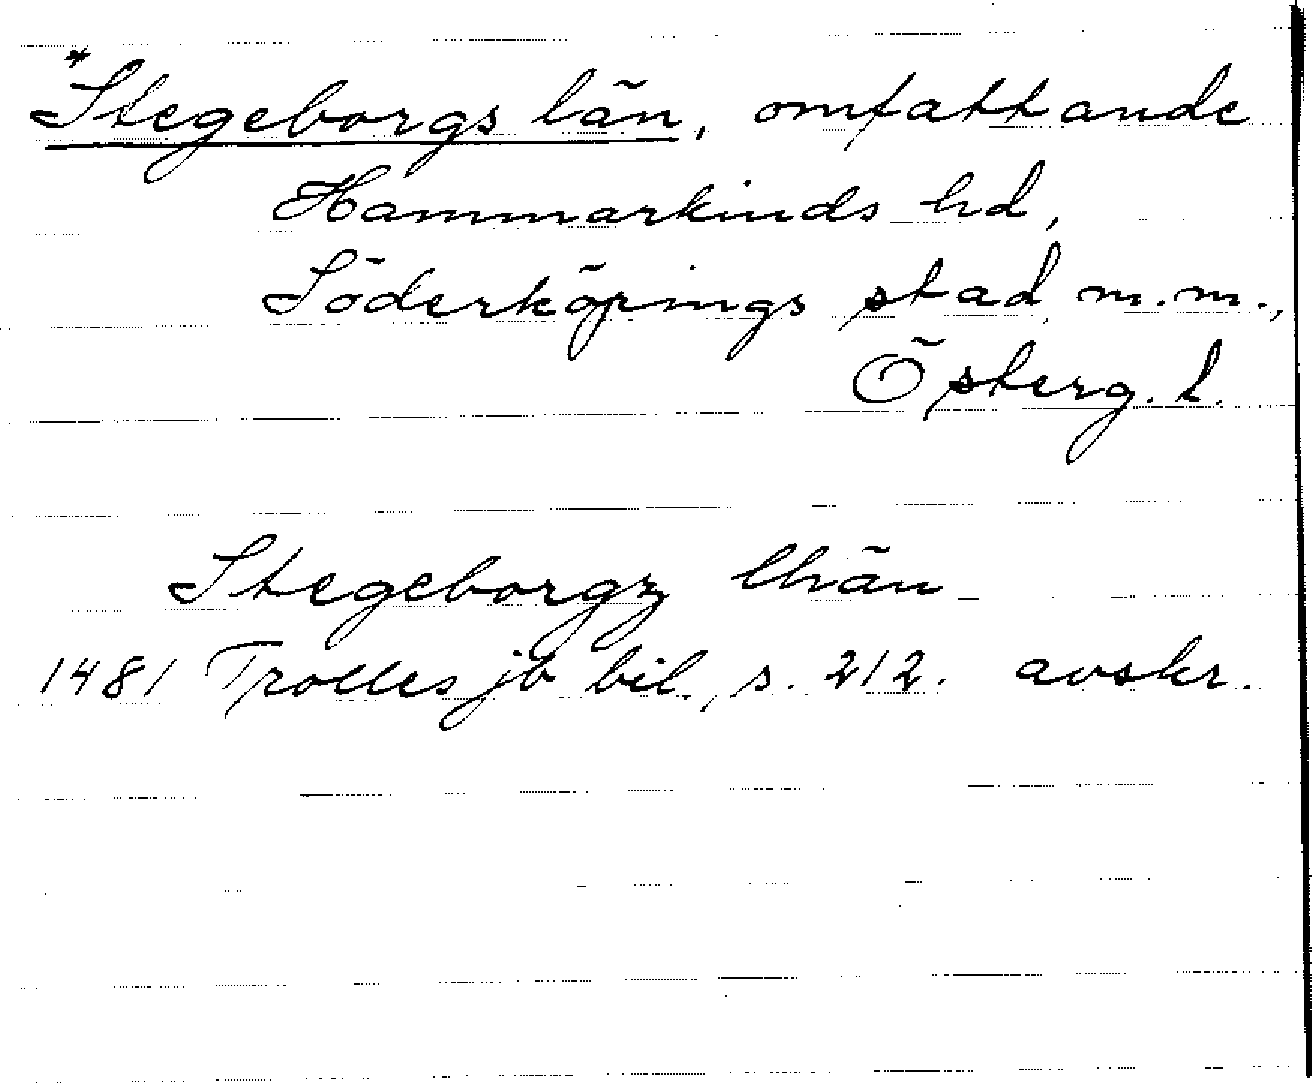 *Stegeborgs län, omfattande
Hammarkinds hd,
Söderköpings stad m.m.,
Österg. l.
Stegeborgz lhän
1481 Trolles jb bil., s. 212. avskr.